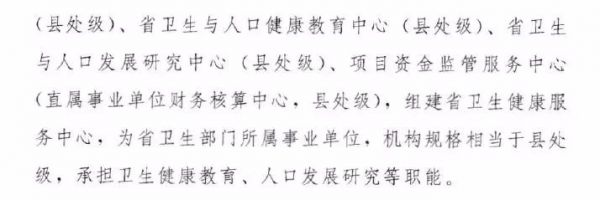 (县处级)、省卫生与人口健康教育中心(县处级)、省卫生
与人口发展研究中心(县处级)、项目资金监管服务中心
(直属事业单位财务核算中心,县处级),组建省卫生健康服
务中心,为省卫生部门所属事业单位,机构规格相当于县处
级,承担卫生健康教育、人口发展研究等职能。